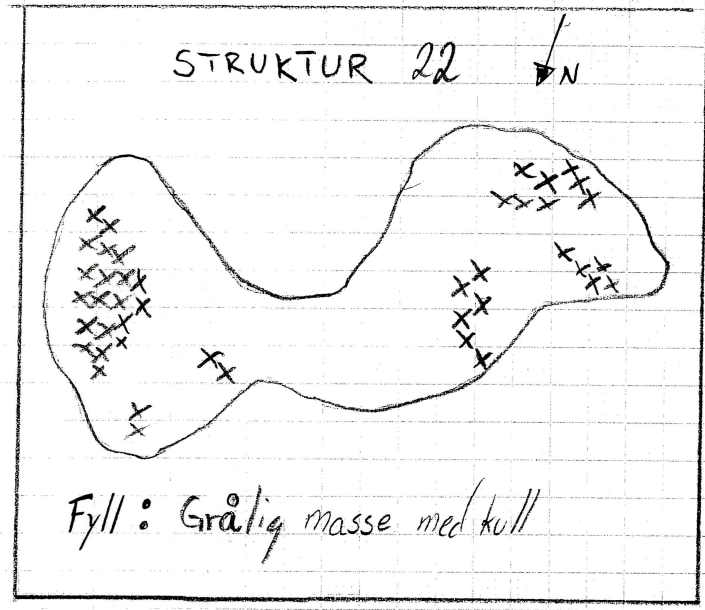 STRUKTUR 22
N
Fyll: Grålig masse med kull